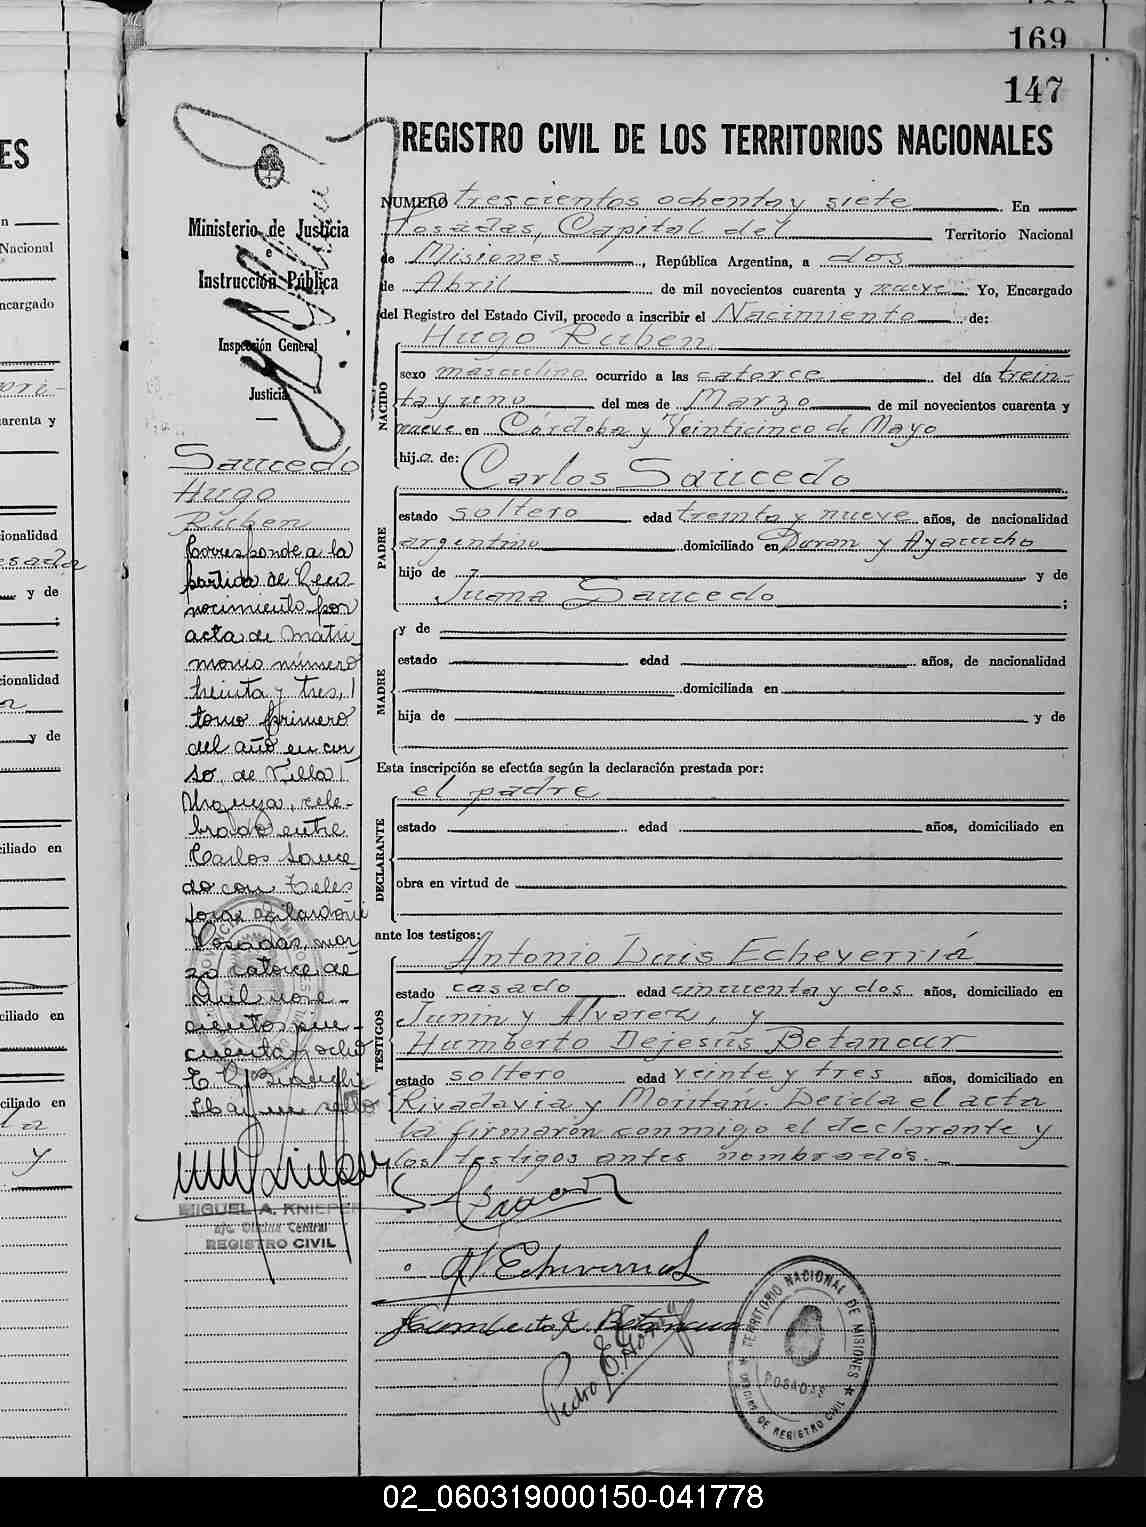 169
147
REGISTRO CIVIL DE LOS TERRITORIOS NACIONALES
Ministerio de Justicia
e
Instrucción Pública
Inspección General
Justicia
NUMERO trescientos ochenta y siete En
Posadas, Capital del Territorio Nacional
de Misiones, República Argentina, a dos
de Abril de mil novecientos cuarenta y nueve. Yo, Encargado
del Registro del Estado Civil, procedo a inscribir el Nacimiento de:
NACIDO
Hugo Ruben
sexo masculino ocurrido a las catorce del día trein-
ta y uno del mes de Marzo de mil novecientos cuarenta y
nueve en Córdoba y Veinticinco de Mayo
hijo de: Carlos Saucedo
PADRE
estado soltero edad treinta y nueve años, de nacionalidad
argentino domiciliado en Duran y Ayacucho
hijo de y de
Juana Saucedo;
MADRE
y de
estado edad años, de nacionalidad
domiciliada en
hija de y de
Esta inscripción se efectúa según la declaración prestada por:
DECLARANTE
el padre
estado edad años, domiciliado en
obra en virtud de
ante los testigos:
TESTIGOS
Antonio Luis Echeverriá
estado casado edad cincuenta y dos años, domiciliado en
Junin y Alvarez, y
Humberto Dejesús Betancur
estado soltero edad veinte y tres años, domiciliado en
Rivadavia y Moritán. Leída el acta
la firmarón conmigo el declarante y
los testigos antes nombrados.
Saucedo
Hugo
Ruben
Corresponde a la
partida de Reco-
nocimiento por
acta de Matri-
monio número
treinta y tres,
tomo primero
del año en cur-
so, de Villa
Urquiza, cele-
brado entre
Carlos Sauce-
do con Teles-
fora
Posadas, mar-
zo catorce de
mil nove-
cientos cin-
cuenta y ocho
MIGUEL A. KNIEPER
Oficina Central
REGISTRO CIVIL
A L Echeverria
Humberto D. Betancur
Pedro E.
TERRITORIO NACIONAL DE MISIONES
POSADAS
OFICINA DE REGISTRO CIVIL
ES
Nacional
ncargado
arenta y
cionalidad
esada
y de
ionalidad
y de
iliado en
ciliado en
ciliado en
y
02_060319000150-041778